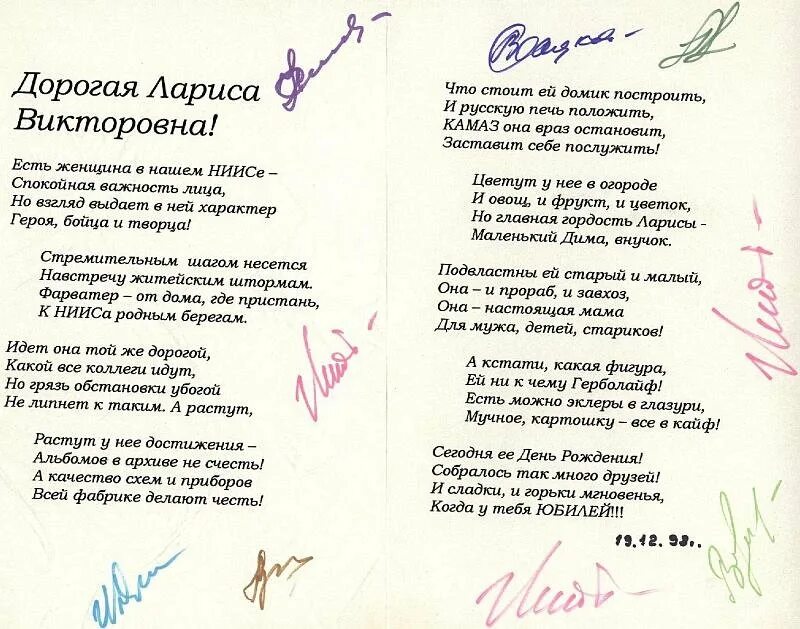 Дорогая Лариса
Викторовна!
Есть женщина в нашем НИИСе –
Спокойная важность лица,
Но взгляд выдает в ней характер
Героя, бойца и творца!
Стремительным шагом несется
Навстречу житейским штормам.
Фарватер – от дома, где пристань,
К НИИСа родным берегам.
Идет она той же дорогой,
Какой все коллеги идут,
Но грязь обстановки убогой
Не липнет к таким. А растут,
Растут у нее достижения –
Альбомов в архиве не счесть!
А качество схем и приборов
Всей фабрике делают честь!
Что стоит ей домик построить,
И русскую печь положить,
КАМАЗ она враз остановит,
Заставит себе послужить!
Цветут у нее в огороде
И овощ, и фрукт, и цветок,
Но главная гордость Ларисы -
Маленький Дима, внучок.
Подвластны ей старый и малый,
Она – и прораб, и завхоз,
Она – настоящая мама
Для мужа, детей, стариков!
А кстати, какая фигура,
Ей ни к чему Герболайф!
Есть можно эклеры в глазури,
Мучное, картошку – все в кайф!
Сегодня ее День Рождения!
Собралось так много друзей!
И сладки, и горьки мгновенья,
Когда у тебя ЮБИЛЕЙ!!!
19.12.98..